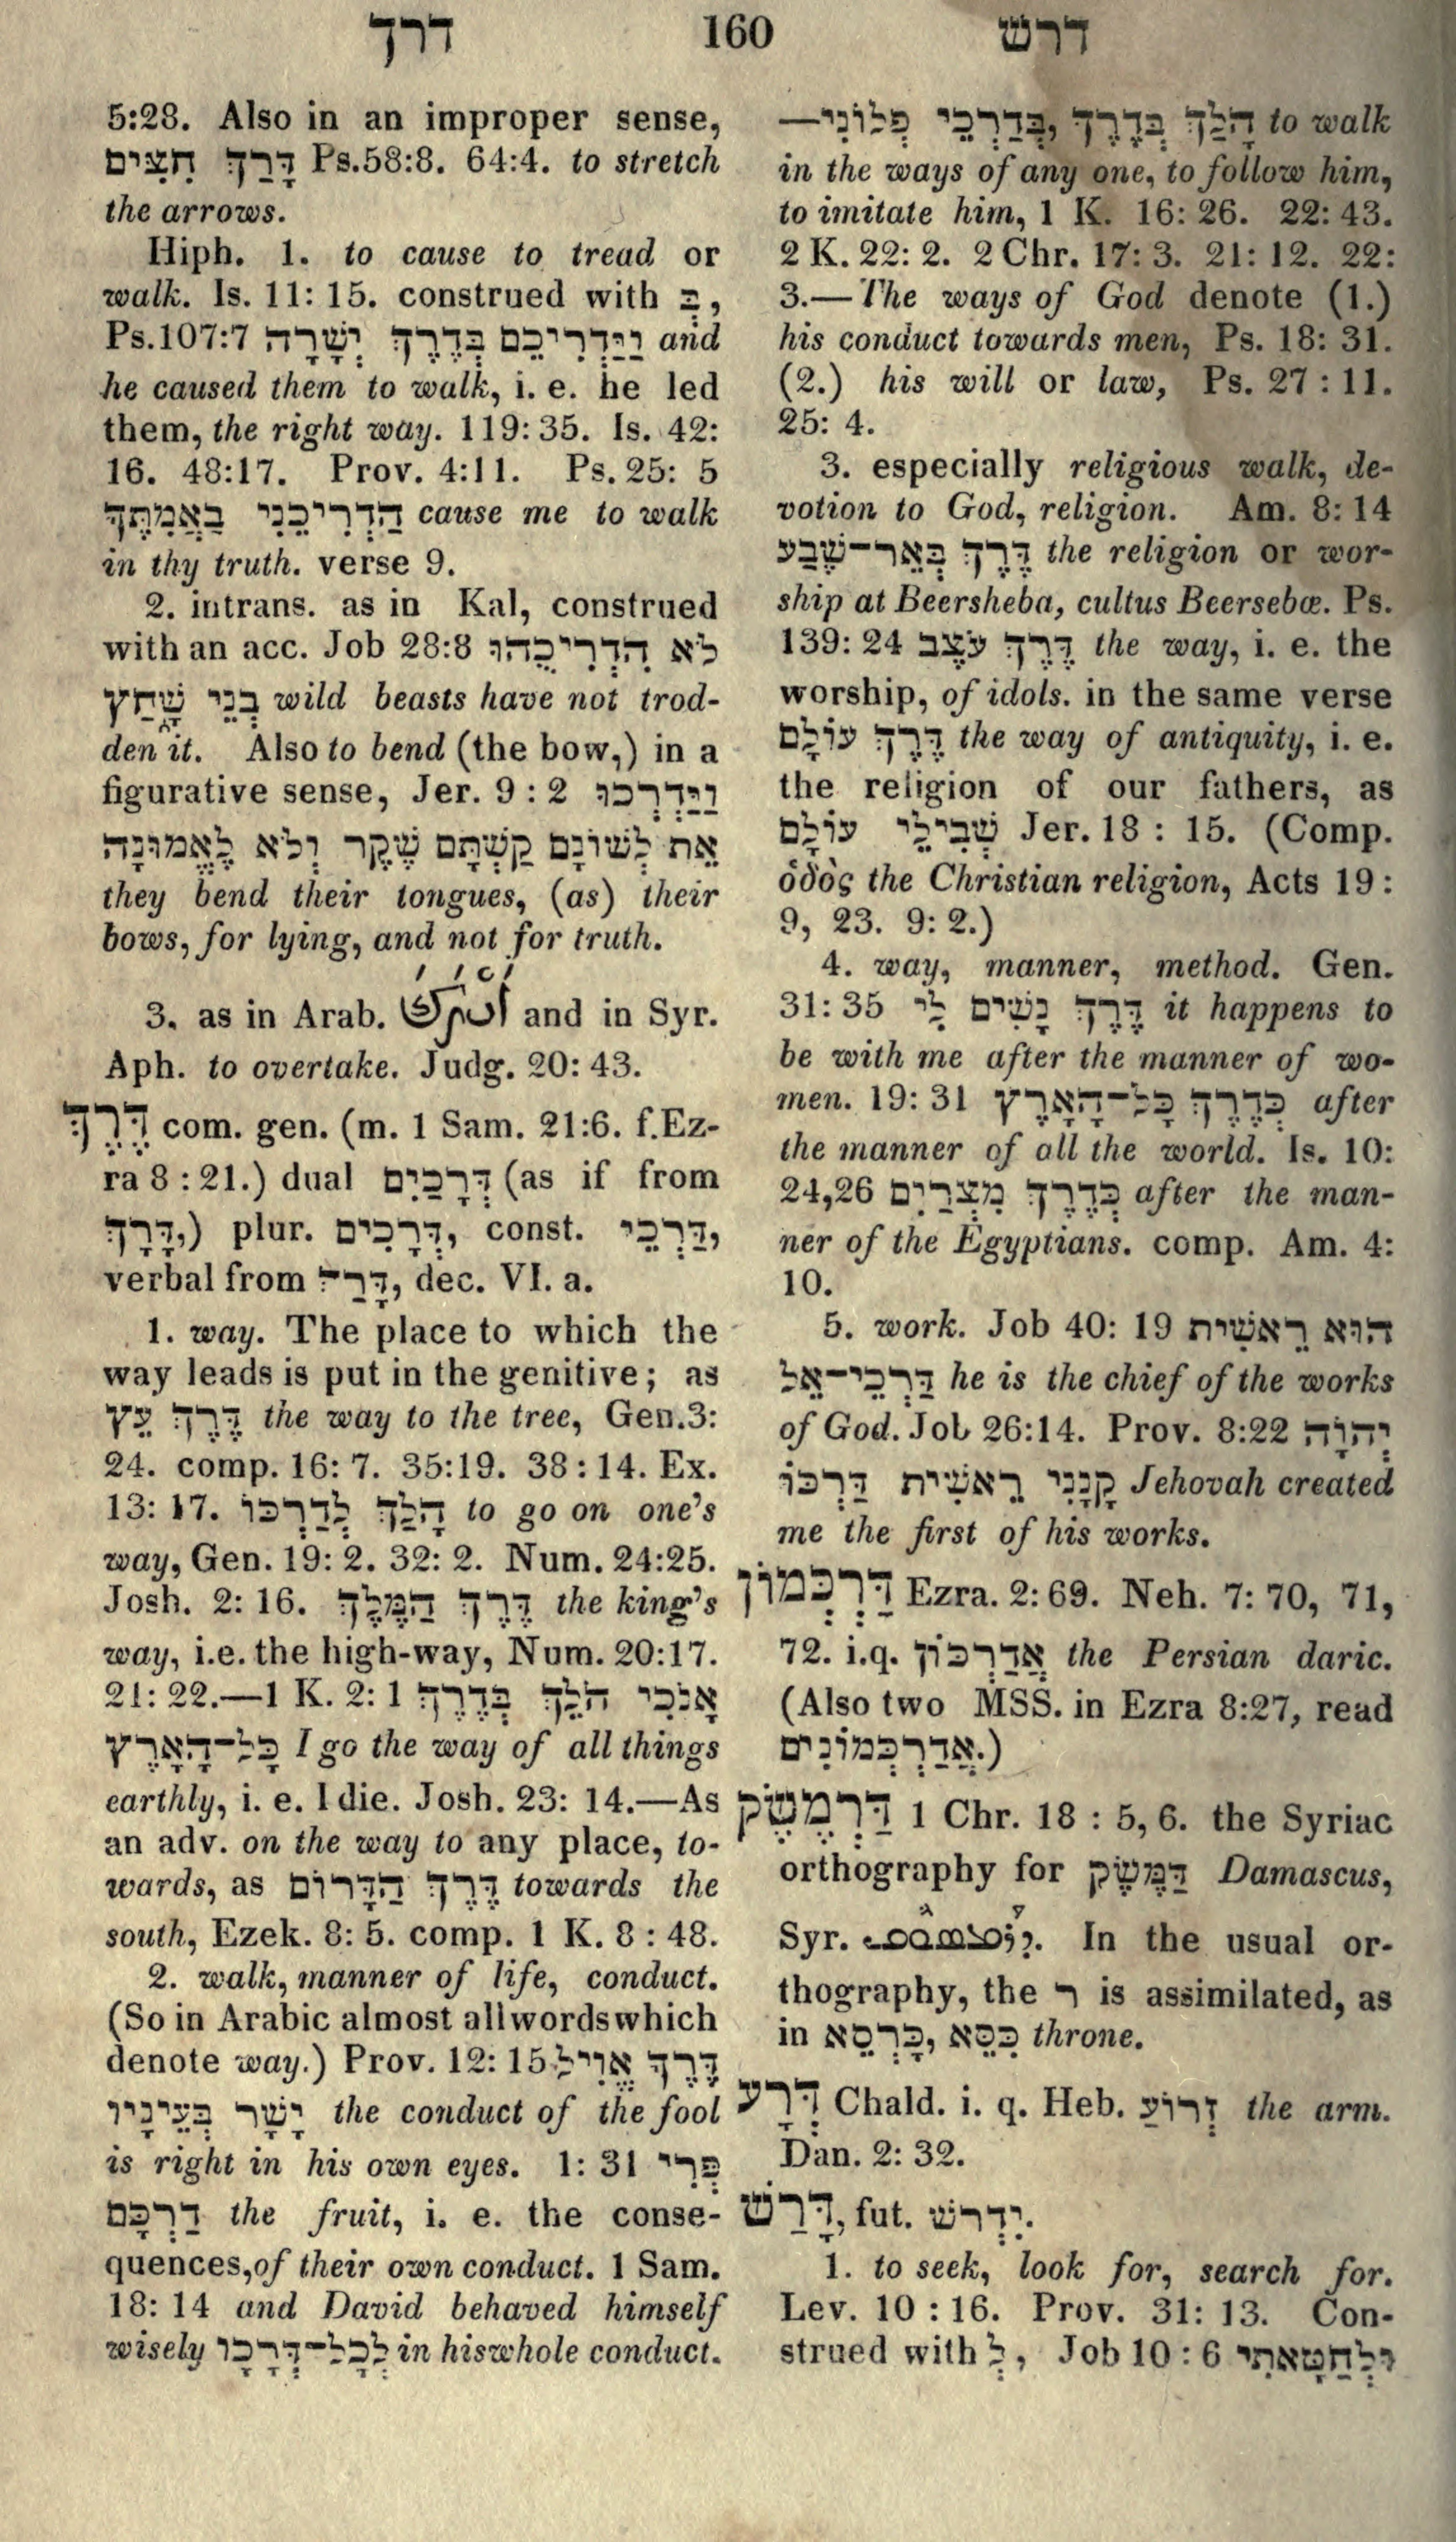 דרך 160 דרש
5:28. Also in an improper sense,
דָּרַךְ חִצִּים Ps.58:8. 64:4. to stretch
the arrows.
Hiph. 1. to cause to tread or
walk. Is. 11: 15. construed with בְּ,
Ps.107:7 וַיַּדְרִיכֵם בְּדֶרֶךְ יְשָׁרָה and
he caused them to walk, i. e. he led
them, the right way. 119: 35. Is. 42:
16. 48:17. Prov. 4:11. Ps. 25: 5
הַדְרִיכֵנִי בַאֲמִתֶּךָ cause me to walk
in thy truth. verse 9.
2. intrans. as in Kal, construed
with an acc. Job 28:8 לֹא הִדְרִיכֻהוּ
בְנֵי שָׁחַץ wild beasts have not trod-
den it. Also to bend (the bow,) in a
figurative sense, Jer. 9 : 2 וַיַּדְרְכוּ
אֵת לְשׁוֹנָם קַשְׁתָּם שֶׁקֶר וְלֹא לֶאֱמוּנָה
they bend their tongues, (as) their
bows, for lying, and not for truth.
3. as in Arab. أَدْرَكَ and in Syr.
Aph. to overtake. Judg. 20: 43.
דֶּרֶךְ com. gen. (m. 1 Sam. 21:6. f.Ez-
ra 8 : 21.) dual דְּרָכַיִם (as if from
דָּרָךְ,) plur. דְּרָכִים, const. דַּרְכֵי,
verbal from דָּרַךְ, dec. VI. a.
1. way. The place to which the
way leads is put in the genitive; as
דֶּרֶךְ עֵץ the way to the tree, Gen.3:
24. comp. 16: 7. 35:19. 38 : 14. Ex.
13: 17. הָלַךְ לְדַרְכּוֹ to go on one's
way, Gen. 19: 2. 32: 2. Num. 24:25.
Josh. 2: 16. דֶּרֶךְ הַמֶּלֶךְ the king's
way, i.e. the high-way, Num. 20:17.
21: 22.—1 K. 2: 1 אָנֹכִי הֹלֵךְ בְּדֶרֶךְ
כָּל־הָאָרֶץ I go the way of all things
earthly, i. e. I die. Josh. 23: 14.—As
an adv. on the way to any place, to-
wards, as דֶּרֶךְ הַדָּרוֹם towards the
south, Ezek. 8: 5. comp. 1 K. 8 : 48.
2. walk, manner of life, conduct.
(So in Arabic almost all words which
denote way.) Prov. 12: 15 דֶּרֶךְ אֱוִיל
יָשָׁר בְּעֵינָיו the conduct of the fool
is right in his own eyes. 1: 31 פְּרִי
דַרְכָּם the fruit, i. e. the conse-
quences, of their own conduct. 1 Sam.
18: 14 and David behaved himself
wisely לְכָל־דְּרָכָו in his whole conduct.
—הָלַךְ בְּדֶרֶךְ, בְּדַרְכֵי פְלוֹנִי to walk
in the ways of any one, to follow him,
to imitate him, 1 K. 16: 26. 22: 43.
2 K. 22: 2. 2 Chr. 17: 3. 21: 12. 22:
3.—The ways of God denote (1.)
his conduct towards men, Ps. 18: 31.
(2.) his will or law, Ps. 27 : 11.
25: 4.
3. especially religious walk, de-
votion to God, religion. Am. 8: 14
דֶּרֶךְ בְּאֵר־שֶׁבַע the religion or wor-
ship at Beersheba, cultus Beersebæ. Ps.
139: 24 דֶּרֶךְ עֹצֶב the way, i. e. the
worship, of idols. in the same verse
דֶּרֶךְ עוֹלָם the way of antiquity, i. e.
the religion of our fathers, as
שְׁבִילֵי עוֹלָם Jer. 18 : 15. (Comp.
ὁδὸς the Christian religion, Acts 19 :
9, 23. 9: 2.)
4. way, manner, method. Gen.
31: 35 דֶּרֶךְ נָשִׁים לִי it happens to
be with me after the manner of wo-
men. 19: 31 כְּדֶרֶךְ כָּל־הָאָרֶץ after
the manner of all the world. Is. 10:
24,26 בְּדֶרֶךְ מִצְרַיִם after the man-
ner of the Egyptians. comp. Am. 4:
10.
5. work. Job 40: 19 הוּא רֵאשִׁית
דַּרְכֵי־אֵל he is the chief of the works
of God. Job 26:14. Prov. 8:22 יְהוָֹה
קָנָנִי רֵאשִׁית דַּרְכּוֹ Jehovah created
me the first of his works.
דַּרְכְּמוֹן Ezra. 2: 69. Neh. 7: 70, 71,
72. i.q. אֲדַרְכּוֹן the Persian daric.
(Also two MSS. in Ezra 8:27, read
אֲדַרְכְּמוֹנִים.)
דַּרְמֶשֶׂק 1 Chr. 18 : 5, 6. the Syriac
orthography for דַּמֶּשֶׂק Damascus,
Syr. ܕܪܡܣܘܩ. In the usual or-
thography, the ר is assimilated, as
in כָּרְסֵא, כִּסֵּא throne.
דְּרָע Chald. i. q. Heb. זְרוֹעַ the arm.
Dan. 2: 32.
דָּרַשׁ, fut. יִדְרֹשׁ.
1. to seek, look for, search for.
Lev. 10 : 16. Prov. 31: 13. Con-
strued with לְ, Job 10 : 6 וּלְחַטָּאתִי